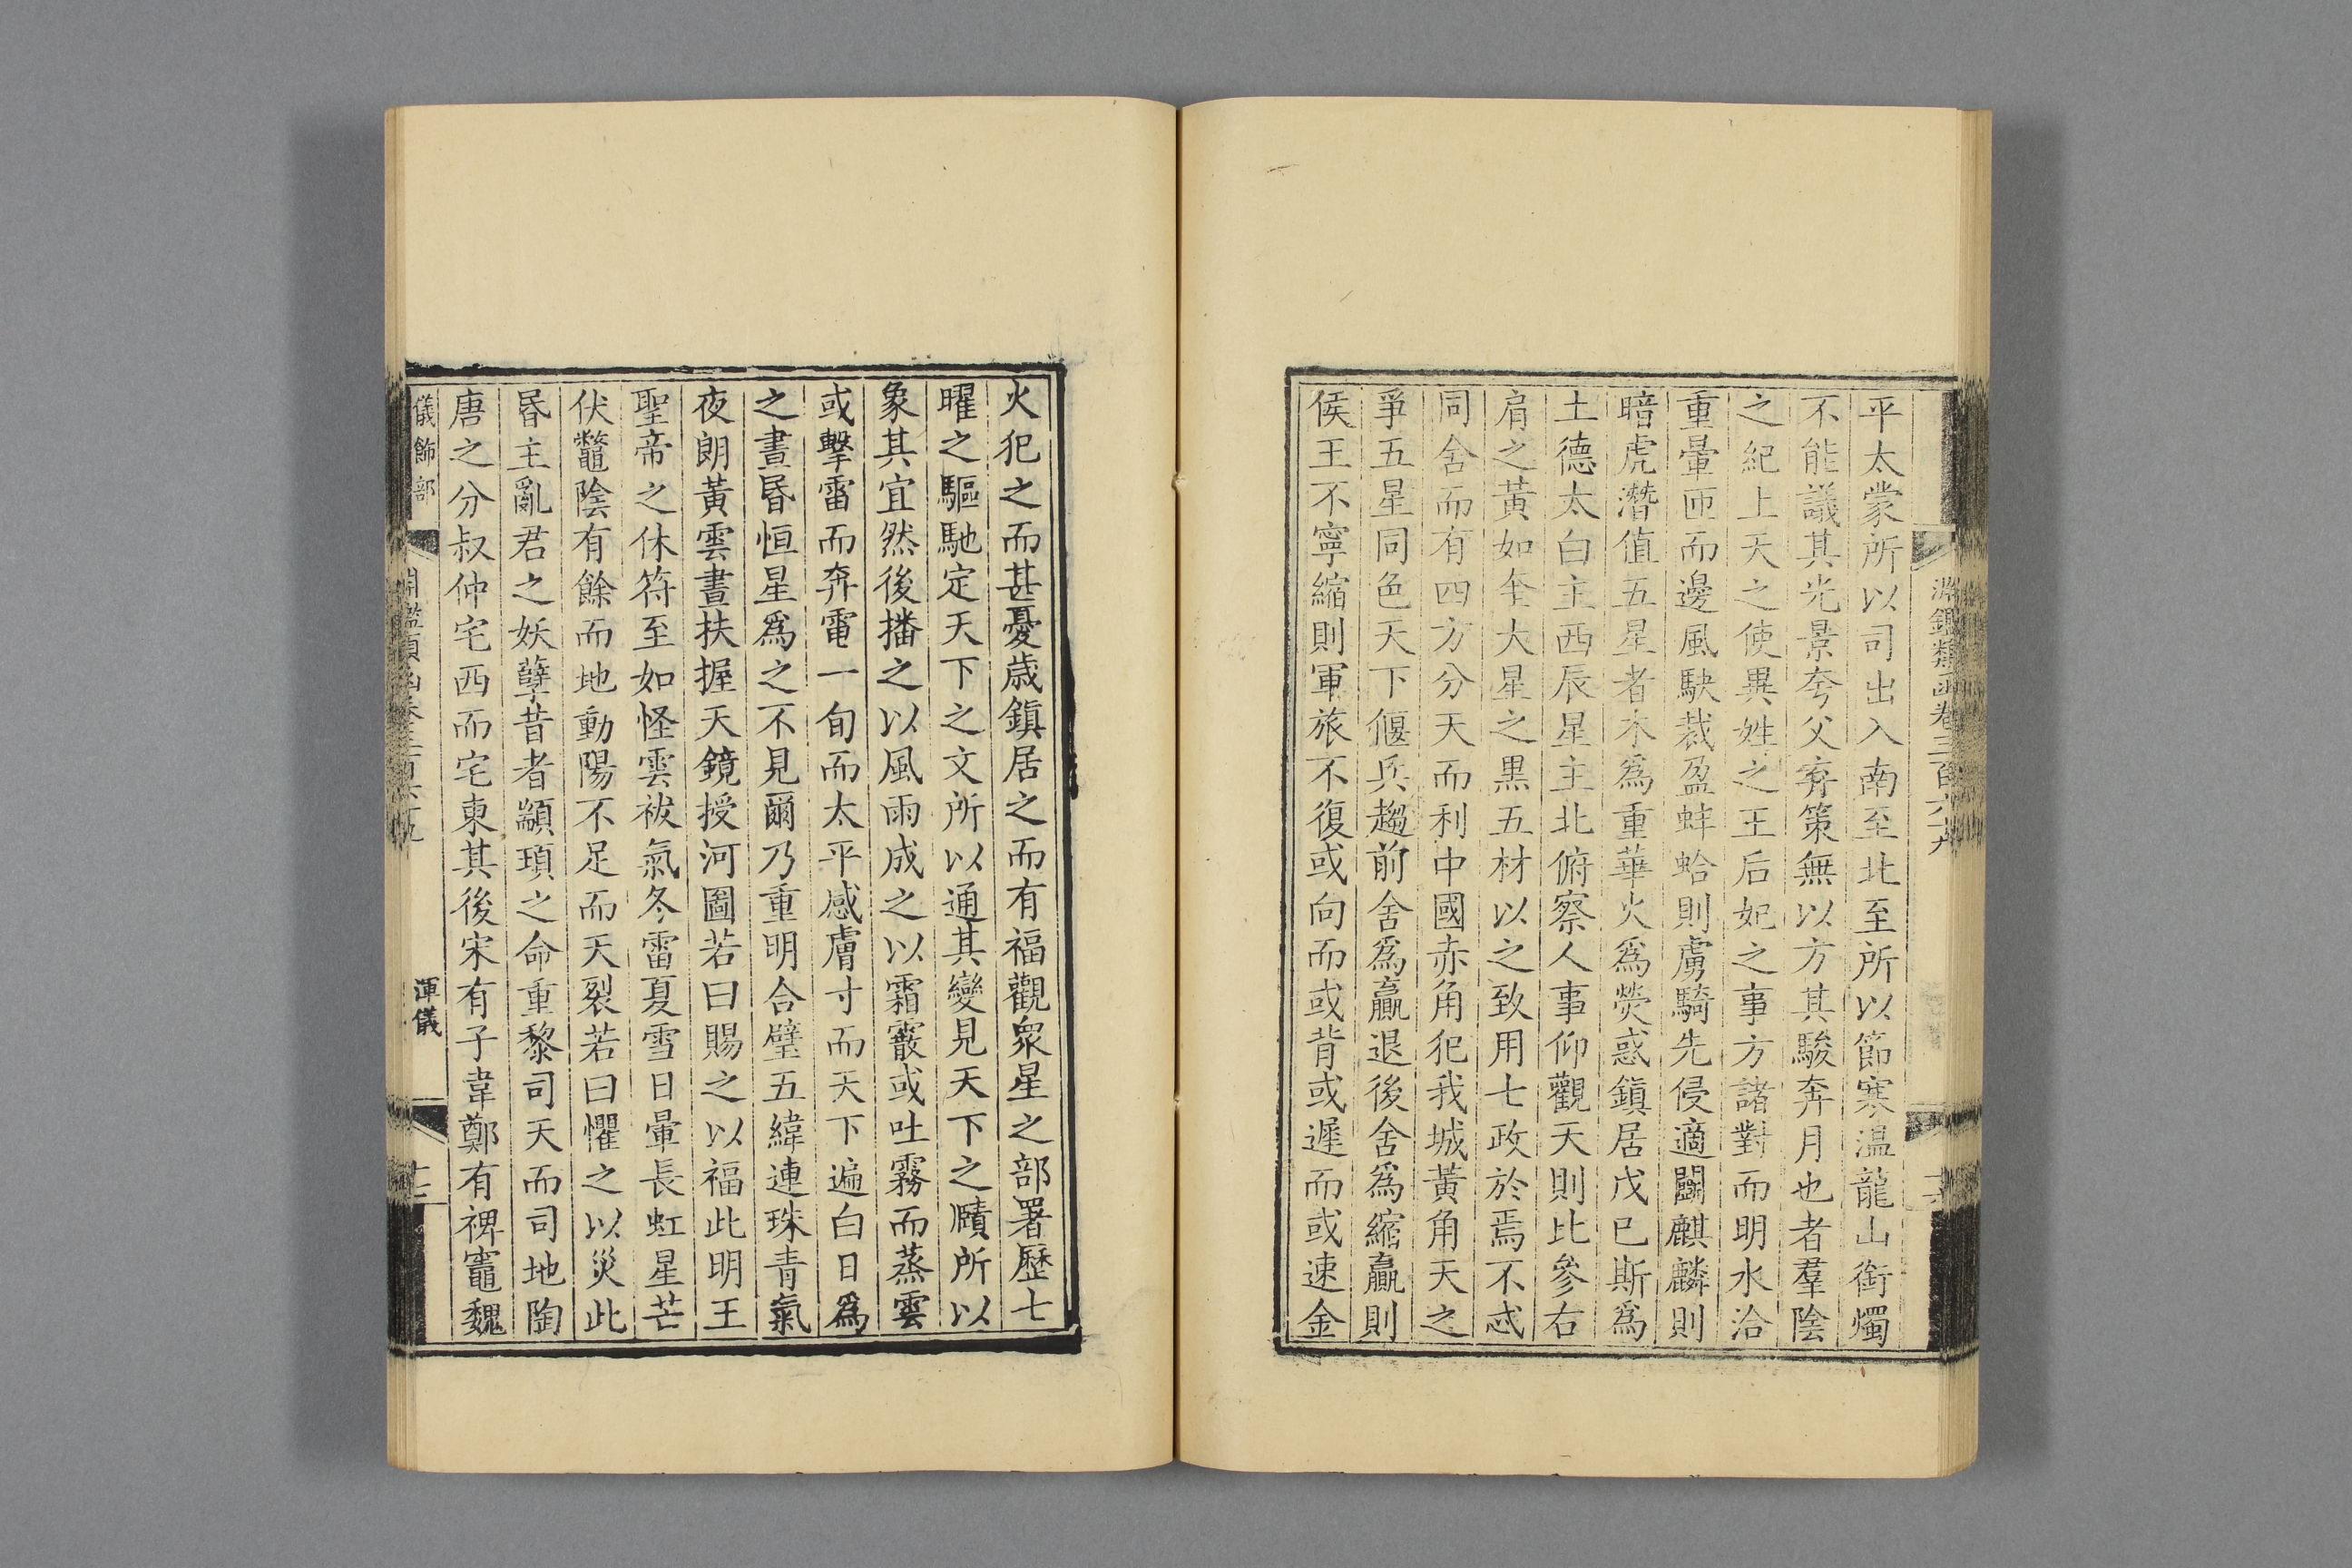 平太蒙所以司出入南至北至所以節寒温龍山銜燭
不能議其光景夸父棄策無以方其駿奔月也者羣陰
之紀上天之使異姓之王后妃之事方諸對而明水洽
重暈匝而邊風駃裁盈蚌蛤則虜騎先侵適鬭麒麟則
暗虎潛值五星者木為重華火爲熒惑鎮居戊巳斯爲
土德太白主西辰星主北俯察人事仰觀天則比參右
肩之黃如奎大星之黒五材以之致用七政於焉不忒
同舍而有四方分天而利中國赤角犯我城黃角天之
爭五星同色天下偃兵趨前舍爲贏退後舍爲縮贏則
侯王不寧縮則軍旅不復或向而或背或遲而或速金
火犯之而甚憂歲鎮居之而有福觀衆星之部署歷七
曜之驅馳定天下之文所以通其變見天下之賾所以
象其宜然後播之以風雨成之以霜霰或吐霧而蒸雲
或擊雷而奔電一旬而太平感膚寸而天下遍白日爲
之晝昬恒星爲之不見爾乃重明合璧五緯連珠青氣
夜朗黃雲晝扶握天鏡授河圖若曰賜之以福此明王
聖帝之休符至如怪雲祅氣冬雷夏雪日暈長虹星芒
伏鼈陰有餘而地動陽不足而天裂若曰懼之以災此
昬主亂君之妖孽昔者顓頊之命重黎司天而司地陶
唐之分叔仲宅西而宅東其後宋有子韋鄭有裨竈魏
淵鑑類函卷三百六十九
儀飾部
渾儀